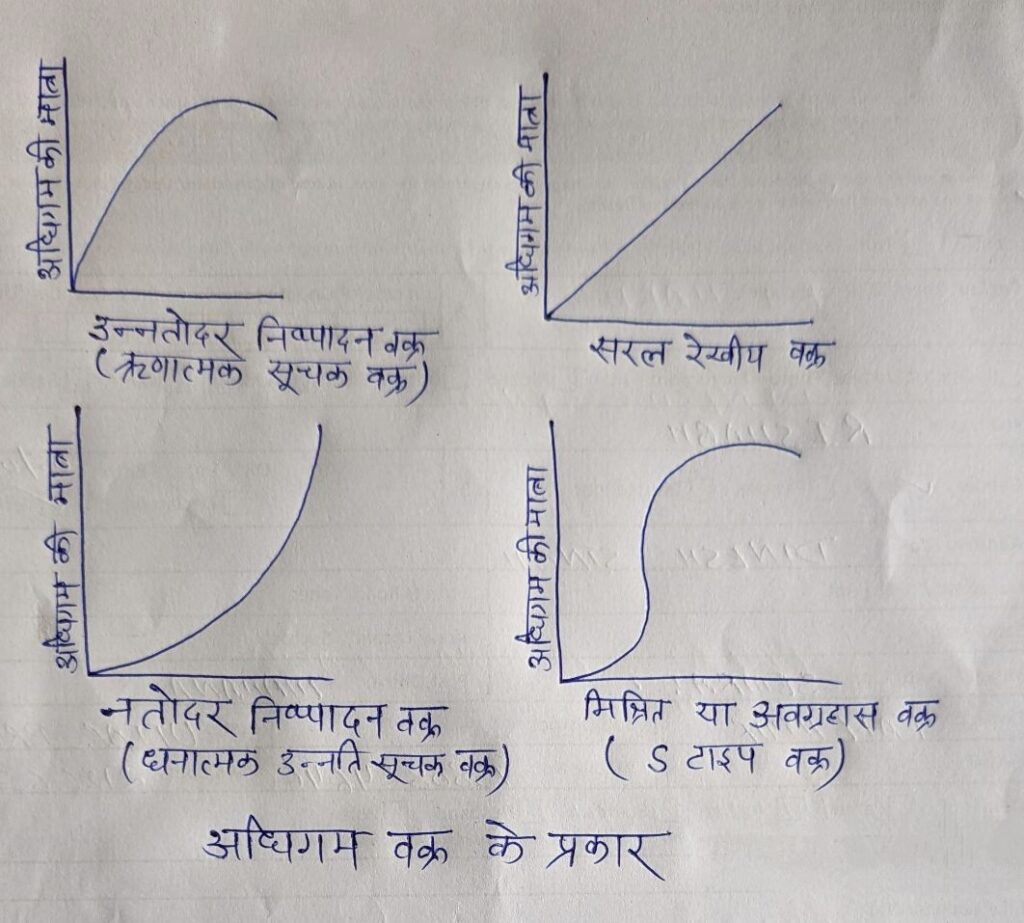 अधिगम की मात्रा
उन्नतोदर निष्पादन वक्र
(ऋणात्मक सूचक वक्र)
अधिगम की मात्रा
सरल रेखीय वक्र
अधिगम की मात्रा
नतोदर निष्पादन वक्र
(धनात्मक उन्नति सूचक वक्र)
अधिगम की मात्रा
मिश्रित या अवग्रहास वक्र
( S टाइप वक्र)
अधिगम वक्र के प्रकार